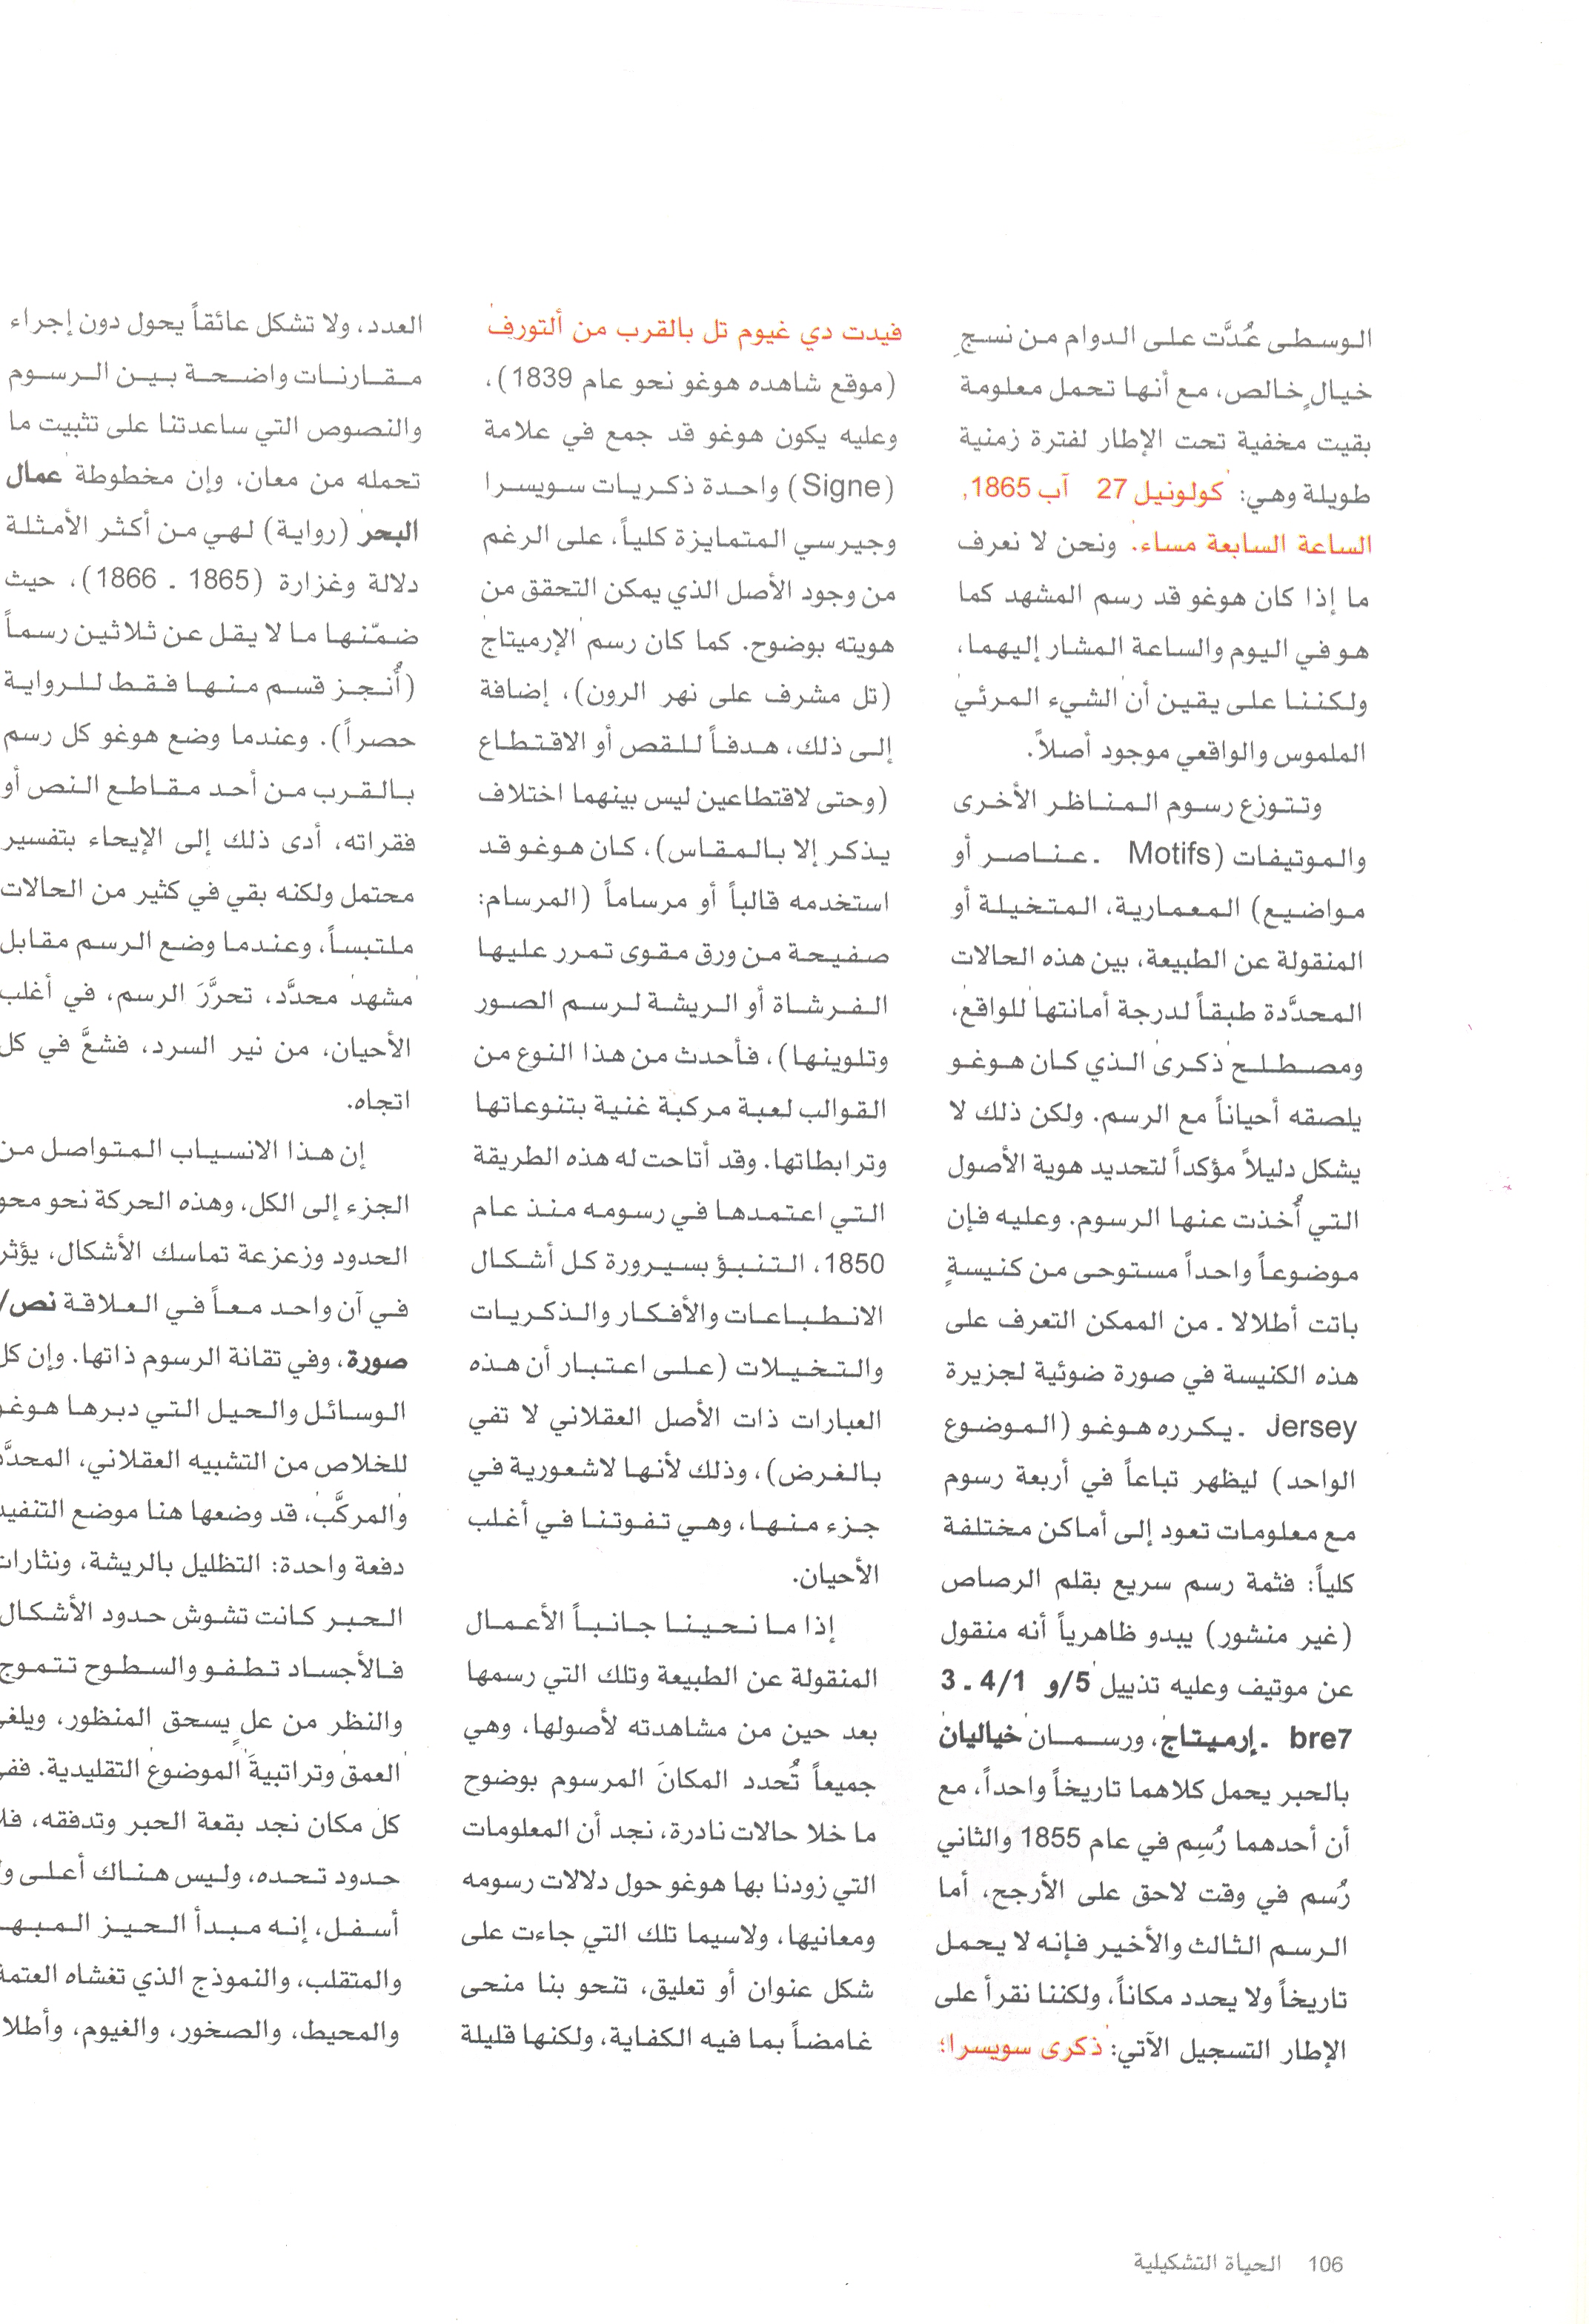 الوسطى عُدَّت على الدوام من نسجِ
خيالٍ خالص، مع أنها تحمل معلومة
بقيت مخفية تحت الإطار لفترة زمنية
طويلة وهي: كولونيل 27 آب 1865,
الساعة السابعة مساء. ونحن لا نعرف
ما إذا كان هوغو قد رسم المشهد كما
هو في اليوم والساعة المشار إليهما،
ولكننا على يقين أن الشيء المرئي
الملموس والواقعي موجود أصلاً.
وتتوزع رسوم المناظر الأخرى
والموتيفات (Motifs ـ عناصر أو
مواضيع) المعمارية، المتخيلة أو
المنقولة عن الطبيعة، بين هذه الحالات
المحدَّدة طبقاً لدرجة أمانتها للواقع،
ومصطلح ذكرى الذي كان هوغو
يلصقه أحياناً مع الرسم. ولكن ذلك لا
يشكل دليلاً مؤكداً لتحديد هوية الأصول
التي أُخذت عنها الرسوم. وعليه فإن
موضوعاً واحداً مستوحى من كنيسةٍ
باتت أطلالا ـ من الممكن التعرف على
هذه الكنيسة في صورة ضوئية لجزيرة
Jersey ـ يكرره هوغو (الموضوع
الواحد) ليظهر تباعاً في أربعة رسوم
مع معلومات تعود إلى أماكن مختلفة
كلياً: فثمة رسم سريع بقلم الرصاص
(غير منشور) يبدو ظاهرياً أنه منقول
عن موتيف وعليه تذييل 5/و 4/1 ـ 3
bre7 ـ إرميتاج، ورسمان خياليان
بالحبر يحمل كلاهما تاريخاً واحداً، مع
أن أحدهما رُسِم في عام 1855 والثاني
رُسم في وقت لاحق على الأرجح، أما
الرسم الثالث والأخير فإنه لا يحمل
تاريخاً ولا يحدد مكاناً، ولكننا نقرأ على
الإطار التسجيل الآتي: ذكرى سويسرا؛
فيدت دي غيوم تل بالقرب من ألتورف
(موقع شاهده هوغو نحو عام 1839)،
وعليه يكون هوغو قد جمع في علامة
(Signe) واحدة ذكريات سويسرا
وجيرسي المتمايزة كلياً، على الرغم
من وجود الأصل الذي يمكن التحقق من
هويته بوضوح. كما كان رسم الإرميتاج
(تل مشرف على نهر الرون)، إضافة
إلى ذلك، هدفاً للقص أو الاقتطاع
(وحتى لاقتطاعين ليس بينهما اختلاف
يذكر إلا بالمقاس)، كان هوغو قد
استخدمه قالباً أو مرساماً (المرسام:
صفيحة من ورق مقوى تمرر عليها
الفرشاة أو الريشة لرسم الصور
وتلوينها)، فأحدث من هذا النوع من
القوالب لعبة مركبة غنية بتنوعاتها
وترابطاتها. وقد أتاحت له هذه الطريقة
التي اعتمدها في رسومه منذ عام
1850، التنبؤ بسيرورة كل أشكال
الانطباعات والأفكار والذكريات
والتخيلات (على اعتبار أن هذه
العبارات ذات الأصل العقلاني لا تفي
بالغرض)، وذلك لأنها لاشعورية في
جزء منها، وهي تفوتنا في أغلب
الأحيان.
إذا ما نحينا جانباً الأعمال
المنقولة عن الطبيعة وتلك التي رسمها
بعد حين من مشاهدته لأصولها، وهي
جميعاً تُحدد المكانَ المرسوم بوضوح
ما خلا حالات نادرة، نجد أن المعلومات
التي زودنا بها هوغو حول دلالات رسومه
ومعانيها، ولاسيما تلك التي جاءت على
شكل عنوان أو تعليق، تنحو بنا منحى
غامضاً بما فيه الكفاية، ولكنها قليلة
العدد، ولا تشكل عائقاً يحول دون إجراء
مقارنات واضحة بين الرسوم
والنصوص التي ساعدتنا على تثبيت ما
تحمله من معان، وإن مخطوطة عمال
البحر (رواية) لهي من أكثر الأمثلة
دلالة وغزارة (1865 ـ 1866)، حيث
ضمّنها ما لا يقل عن ثلاثين رسماً
(أُنجز قسم منها فقط للرواية
حصراً). وعندما وضع هوغو كل رسم
بالقرب من أحد مقاطع النص أو
فقراته، أدى ذلك إلى الإيحاء بتفسير
محتمل ولكنه بقي في كثير من الحالات
ملتبساً، وعندما وضع الرسم مقابل
مشهد محدَّد، تحرَّرَ الرسم، في أغلب
الأحيان، من نير السرد، فشعَّ في كل
اتجاه.
إن هذا الانسياب المتواصل من
الجزء إلى الكل، وهذه الحركة نحو محو
الحدود وزعزعة تماسك الأشكال، يؤثر
في آن واحد معاً في العلاقة نص/
صورة، وفي تقانة الرسوم ذاتها. وإن كل
الوسائل والحيل التي دبرها هوغو
للخلاص من التشبيه العقلاني، المحدَّد
والمركَّب، قد وضعها هنا موضع التنفيذ
دفعة واحدة: التظليل بالريشة، ونثارات
الحبر كانت تشوش حدود الأشكال
فالأجساد تطفو والسطوح تتموج
والنظر من علٍ يسحق المنظور، ويلغي
العمق وتراتبيةَ الموضوع التقليدية. ففي
كل مكان نجد بقعة الحبر وتدفقه، فلا
حدود تحده، وليس هناك أعلى ولا
أسفل، إنه مبدأ الحيز المبهم
والمتقلب، والنموذج الذي تغشاه العتمة
والمحيط، والصخور، والغيوم، وأطلا
106 الحياة التشكيلية